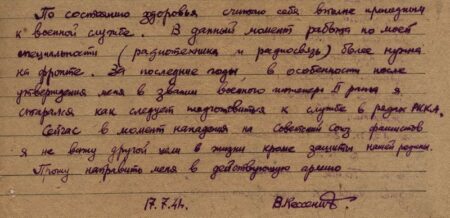 По состоянию здоровья считаю себя вполне пригодным
к военной службе. В данный момент работа по моей
специальности (радиотехника и радиосвязь) более нужна
на фронте. За последние годы, в особенности после
утверждения меня в звании военного инженера II ранга я
старался как следует подготовиться к службе в рядах РККА.
Сейчас в момент нападения на Советский Союз фашистов
я не вижу другой цели в жизни кроме защиты нашей родины.
Прошу направить меня в действующую армию
17.7.41. В.Кессених